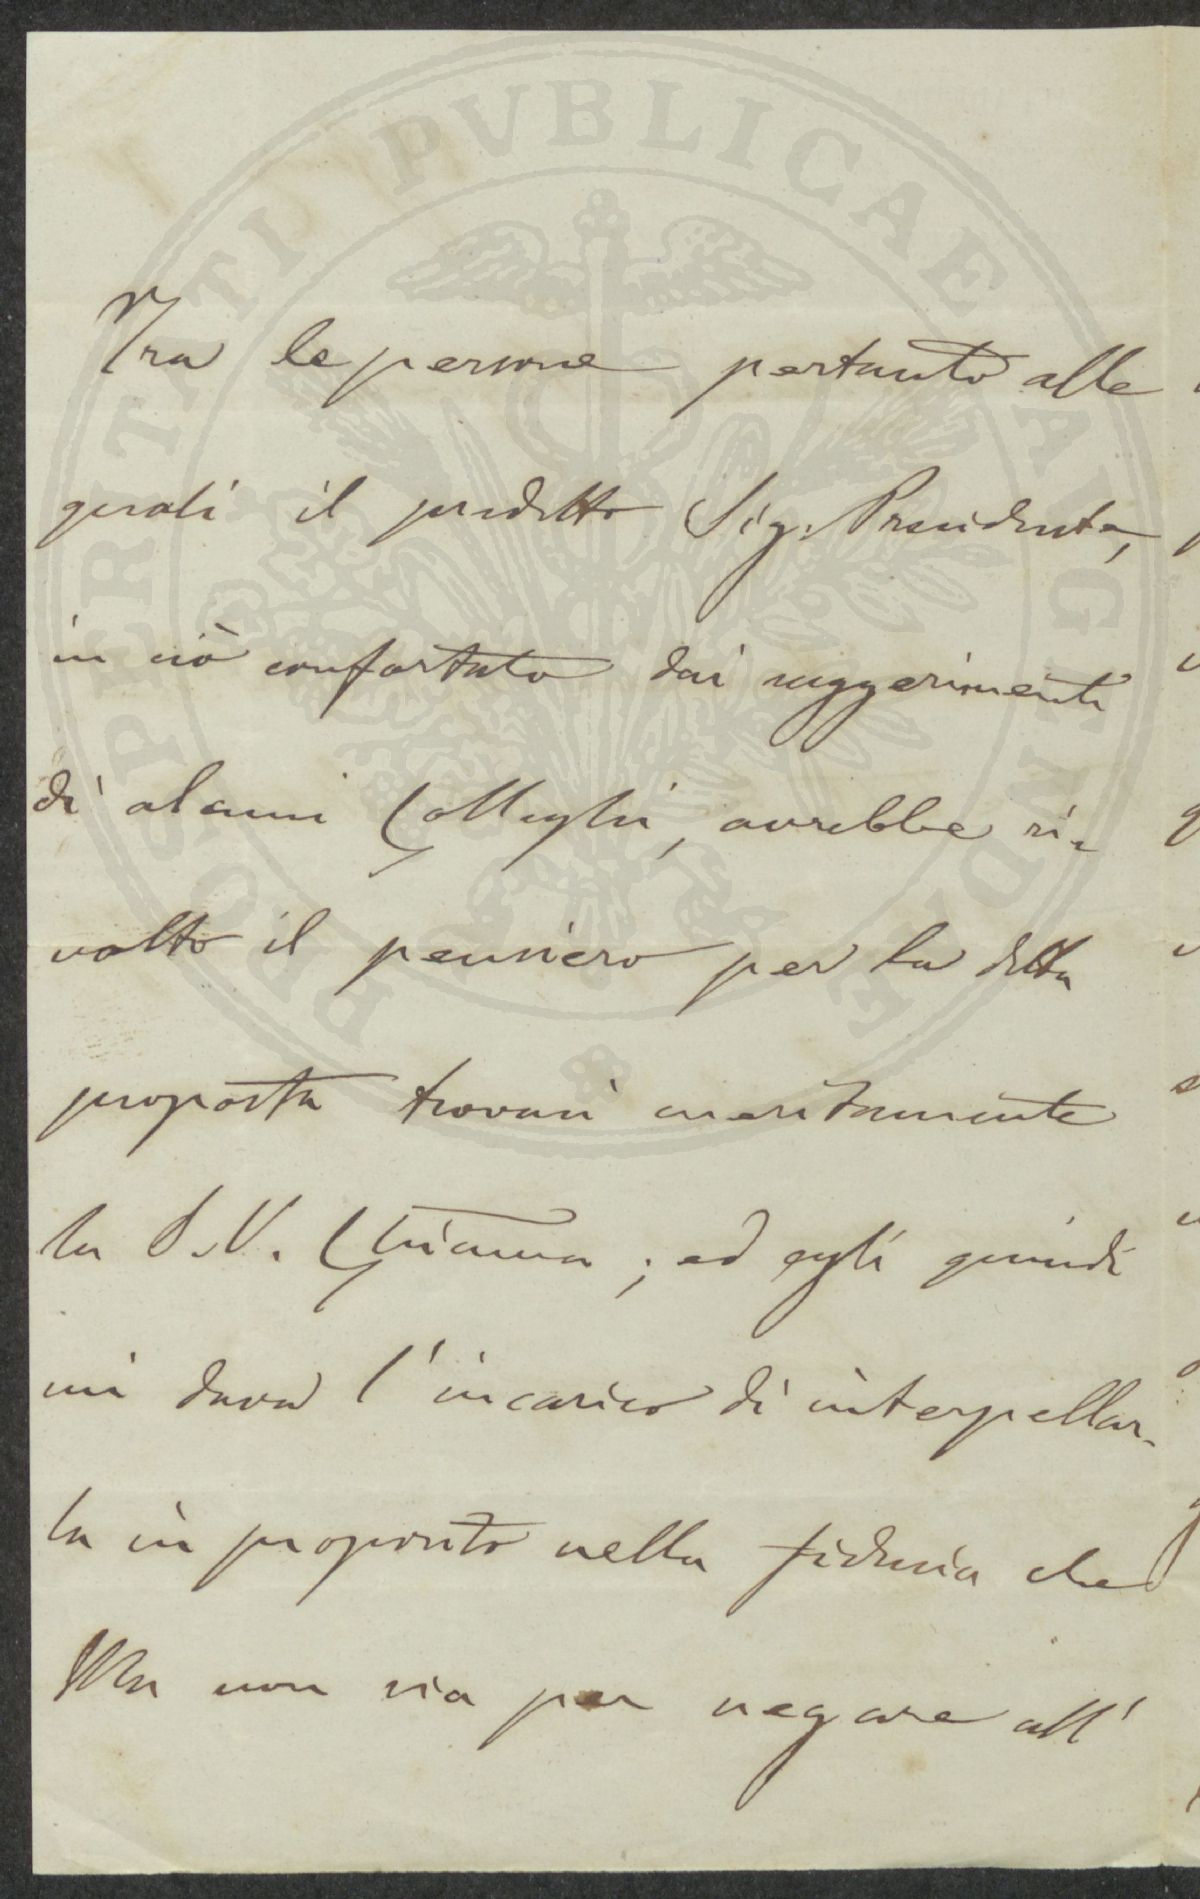 PROSPERITATI PVBLICAE AVGENDAE
Tra le persone pertanto alle
quali il predetto Sig. Presidente,
in ciò confortato dai suggerimenti
di alcuni Colleghi, avrebbe ri-
volto il pensiero per la detta
proposta trovasi meritamente
la S. V. Chiarma; ed egli quindi
mi dava l'incarico di interpellar-
la in proposito nella fiducia che
Ella non sia per negare all'